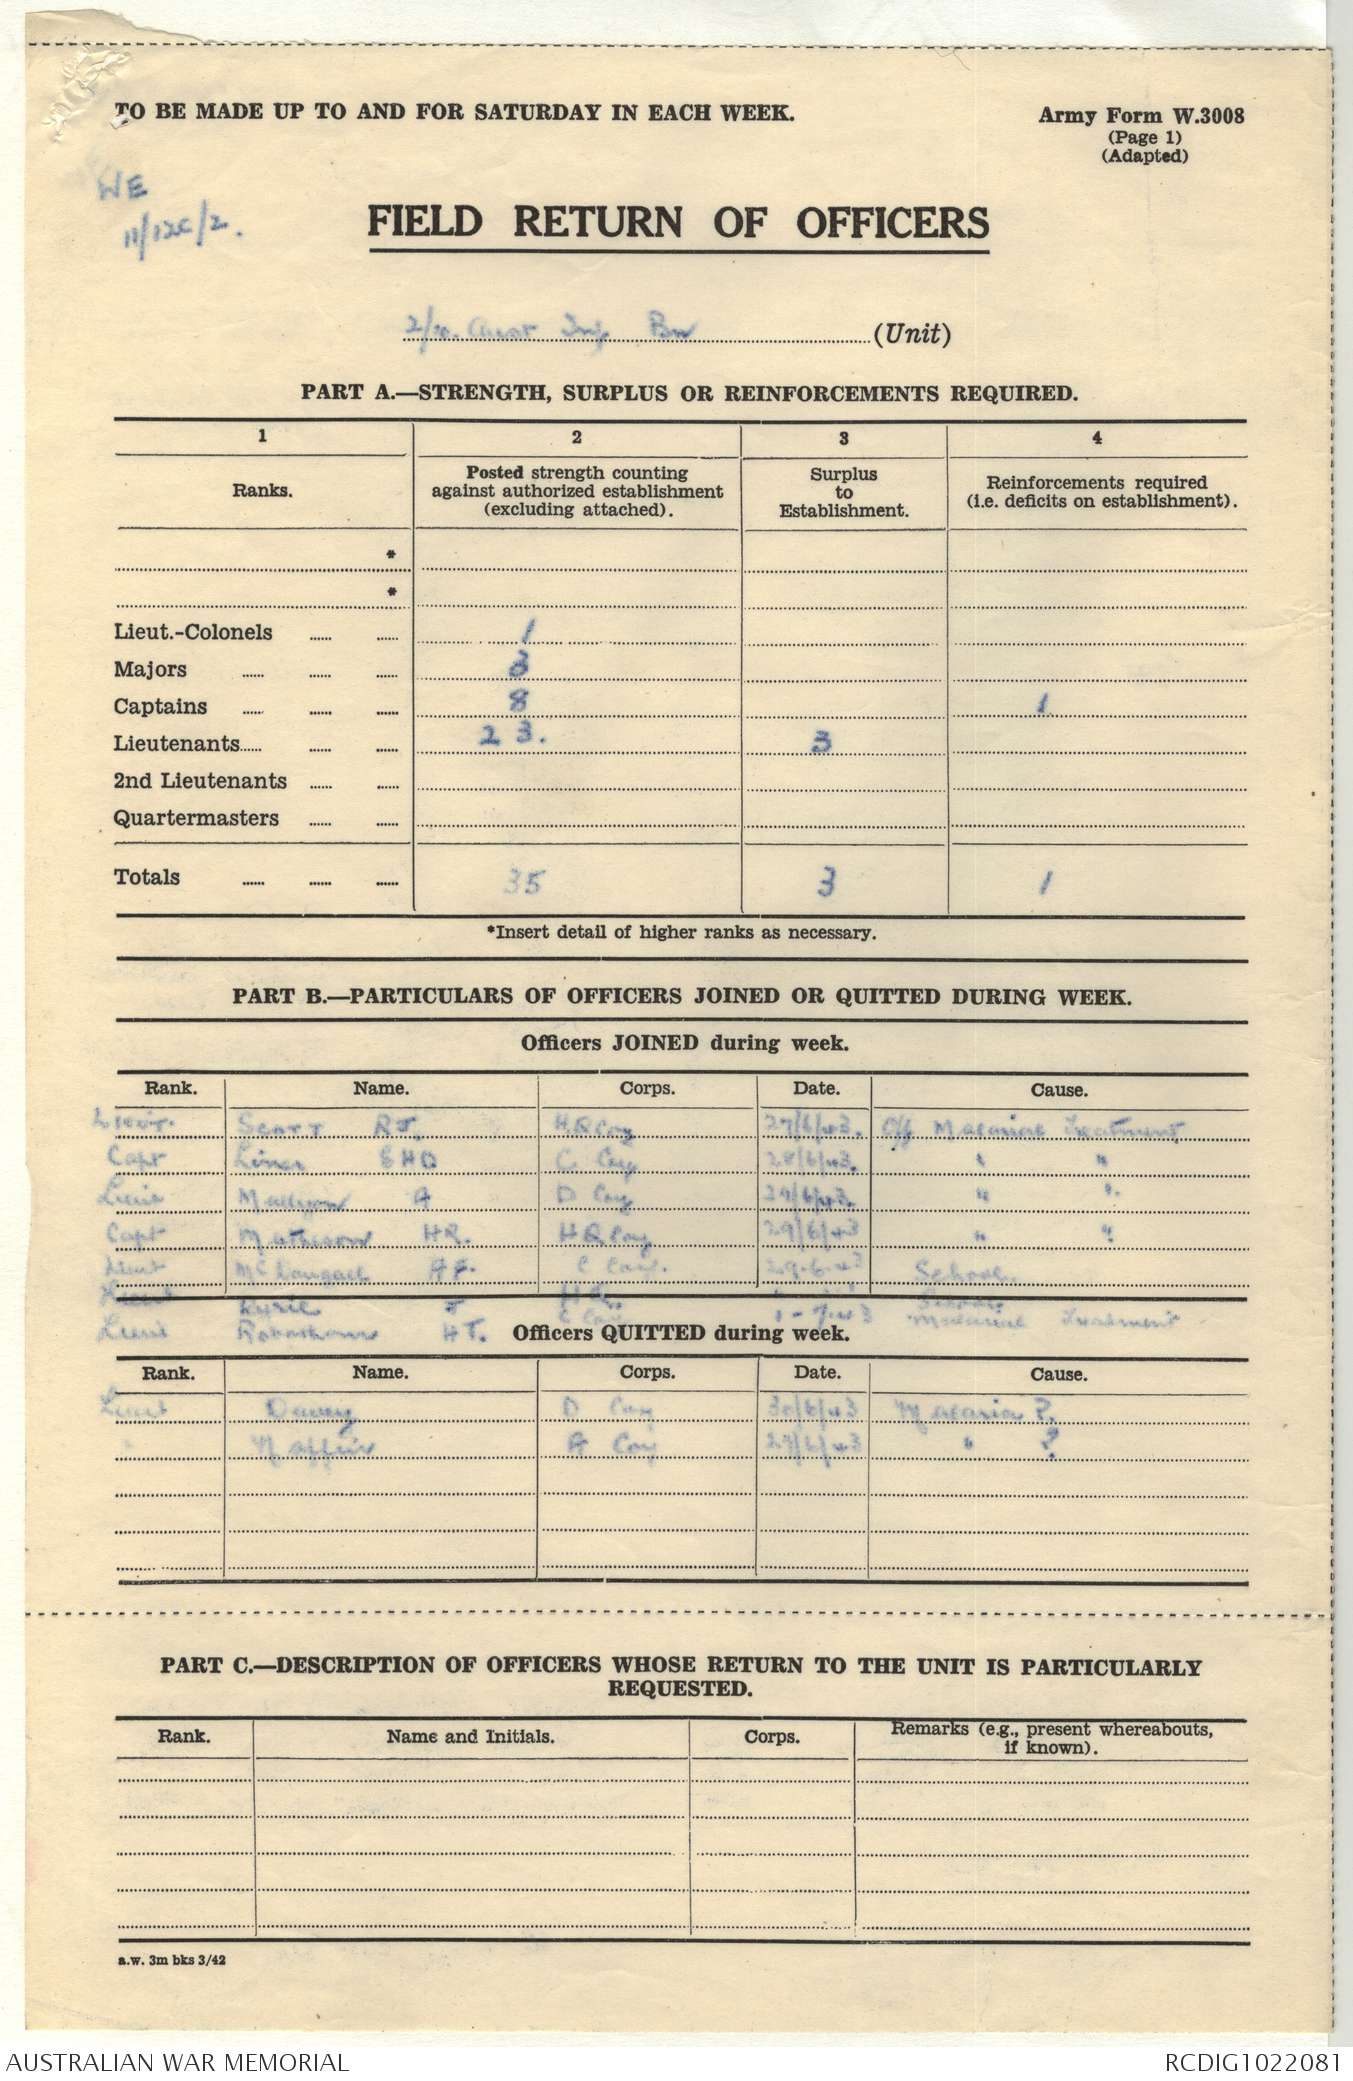 TO BE MADE UP TO AND FOR SATURDAY IN EACH WEEK.
Army Form W.3008
(Page 1)
(Adapted)
WE
11/12C/2.
FIELD RETURN OF OFFICERS
Aust Inf Bn (Unit)
PART A.—STRENGTH, SURPLUS OR REINFORCEMENTS REQUIRED.
1 2 3 4
Ranks. Posted strength counting against authorized establishment (excluding attached). Surplus to Establishment. Reinforcements required (i.e. deficits on establishment).
*
*
Lieut.-Colonels 1
Majors 3
Captains 8 1
Lieutenants 23. 3
2nd Lieutenants
Quartermasters
Totals 35 3 1
*Insert detail of higher ranks as necessary.
PART B.—PARTICULARS OF OFFICERS JOINED OR QUITTED DURING WEEK.
Officers JOINED during week.
Rank. Name. Corps. Date. Cause.
Lieut. Scott RJ. HQ Coy 27/6/43. Off Malarial Treatment
Capt SHD C Coy 28/6/43. " "
Lieut A D Coy 29/6/43. " "
Capt Matheson HR. HQ Coy 29/6/43 " "
Lieut McDougall AF. C Coy. 29.6.43 School.
Lieut Kyrie J HQ. School
Lieut HT. C Coy 1-7-43 Malarial Treatment
Officers QUITTED during week.
Rank. Name. Corps. Date. Cause.
Lieut Davey D Coy 30/6/43 Malaria ?.
A Coy 27/6/43 " ?
PART C.—DESCRIPTION OF OFFICERS WHOSE RETURN TO THE UNIT IS PARTICULARLY
REQUESTED.
Rank. Name and Initials. Corps. Remarks (e.g., present whereabouts, if known).
a.w. 3m bks 3/42
AUSTRALIAN WAR MEMORIAL
RCDIG1022081